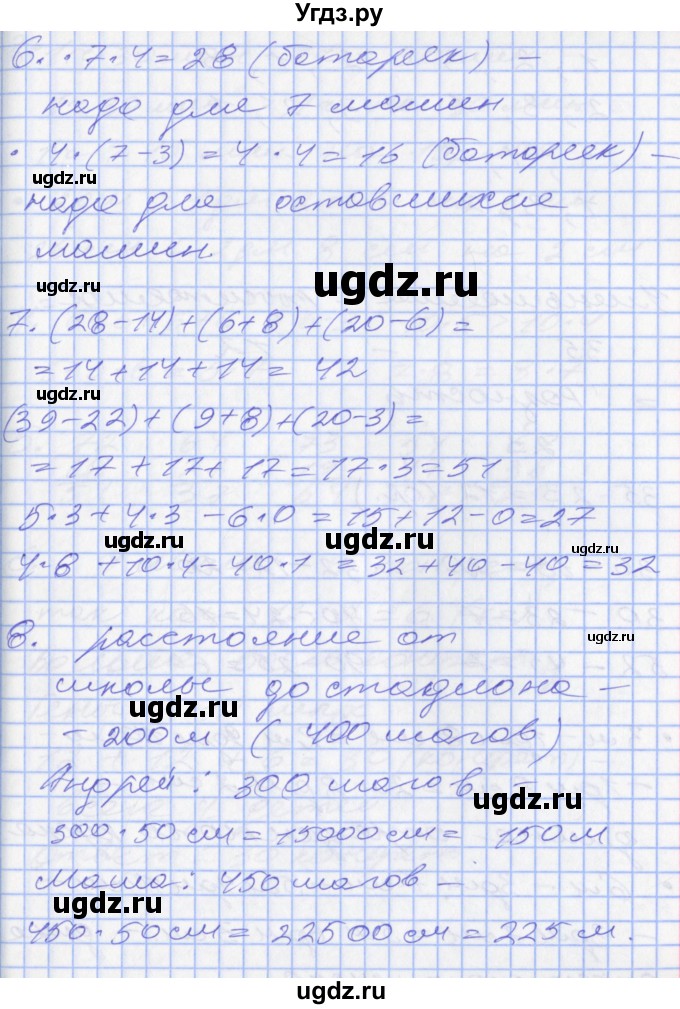 Угдз.ру
6. • 7 • 4 = 28 (батареек) –
надо для 7 машин
• 4 • (7 – 3) = 4 • 4 = 16 (батареек) –
ugdz.ru
надо для оставшихся
машин
ugdz.ru
ugdz.ru
7. (28 – 14) + (6 + 8) + (20 – 6) =
= 14 + 14 + 14 = 42
ugdz.ru
(39 – 22) + (9 + 8) + (20 – 3) =
= 17 + 17 + 17 = 17 • 3 = 51
5 • 3 + 4 • 3 – 6 • 0 = 15 + 12 – 0 = 27
ugdz.ru
ugdz.ru
ugdz.ru
4 • 8 + 10 • 4 – 40 • 1 = 32 + 40 – 40 = 32
8. расстояние от
ugdz.ru
школы до стадиона –
ugdz.ru
– 200 м (400 шагов)
Андрей: 300 шагов –
ugdz.ru
300 • 50 см = 15000 см = 150 м
Маша: 450 шагов –
ugdz.ru
450 • 50 см = 22500 см = 225 м.
ugdz.ru